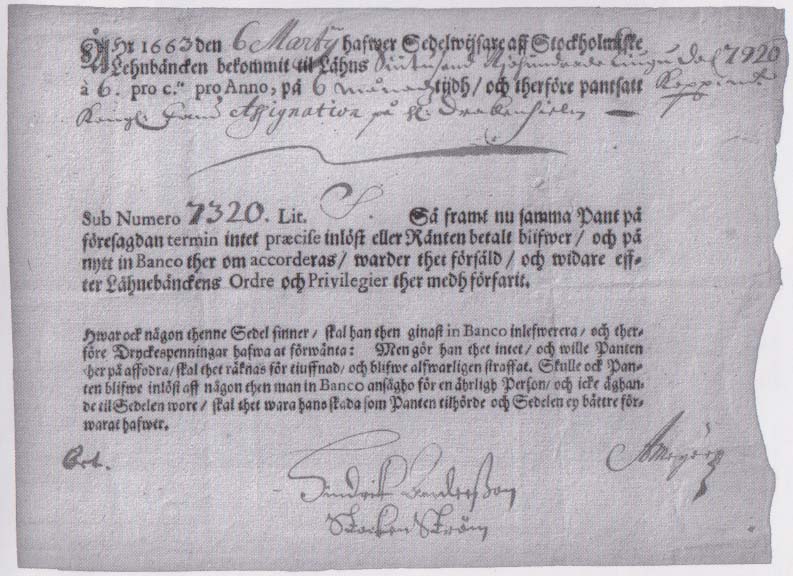 Åhr 1663 den 6 Martÿ hafwer Sedelwijsare aff Stockholmiske
Lehnbäncken bekommit til Låhns Siutusand Niohundrade tiugu dal 7920
à 6. pro c.to pro Anno, på 6 månad tijdh / och therföre pantsatt
Kongl: Assignation på H: Drakenhielm
Sub Numero 7320. Lit. S. Så framt nu samma Pant på
föresagdan termin intet præcise inlöst eller Ränten betalt blifwer / och på
nytt in Banco ther om accorderas / warder thet försåld / och widare eff-
ter Lähnebänckens Ordre och Privilegier ther medh förfarit.
Hwar ock någon thenne Sedel finner / skal han then ginast in Banco inlefwerera / och ther-
före Dryckespenningar hafwa at förwänta: Men gör han thet intet / och wille Panten
her på affodra / skal thet räknas för tiuffnad / och blifwe alfwarligen straffat. Skulle ock Pan-
ten blifwe inlöst aff någon then man in Banco ansågho för en ährligh Person / och icke äghan-
de til Sedelen wore / skal thet wara hans skada som Panten tilhörde och Sedelen ey bättre för-
warat hafwer.